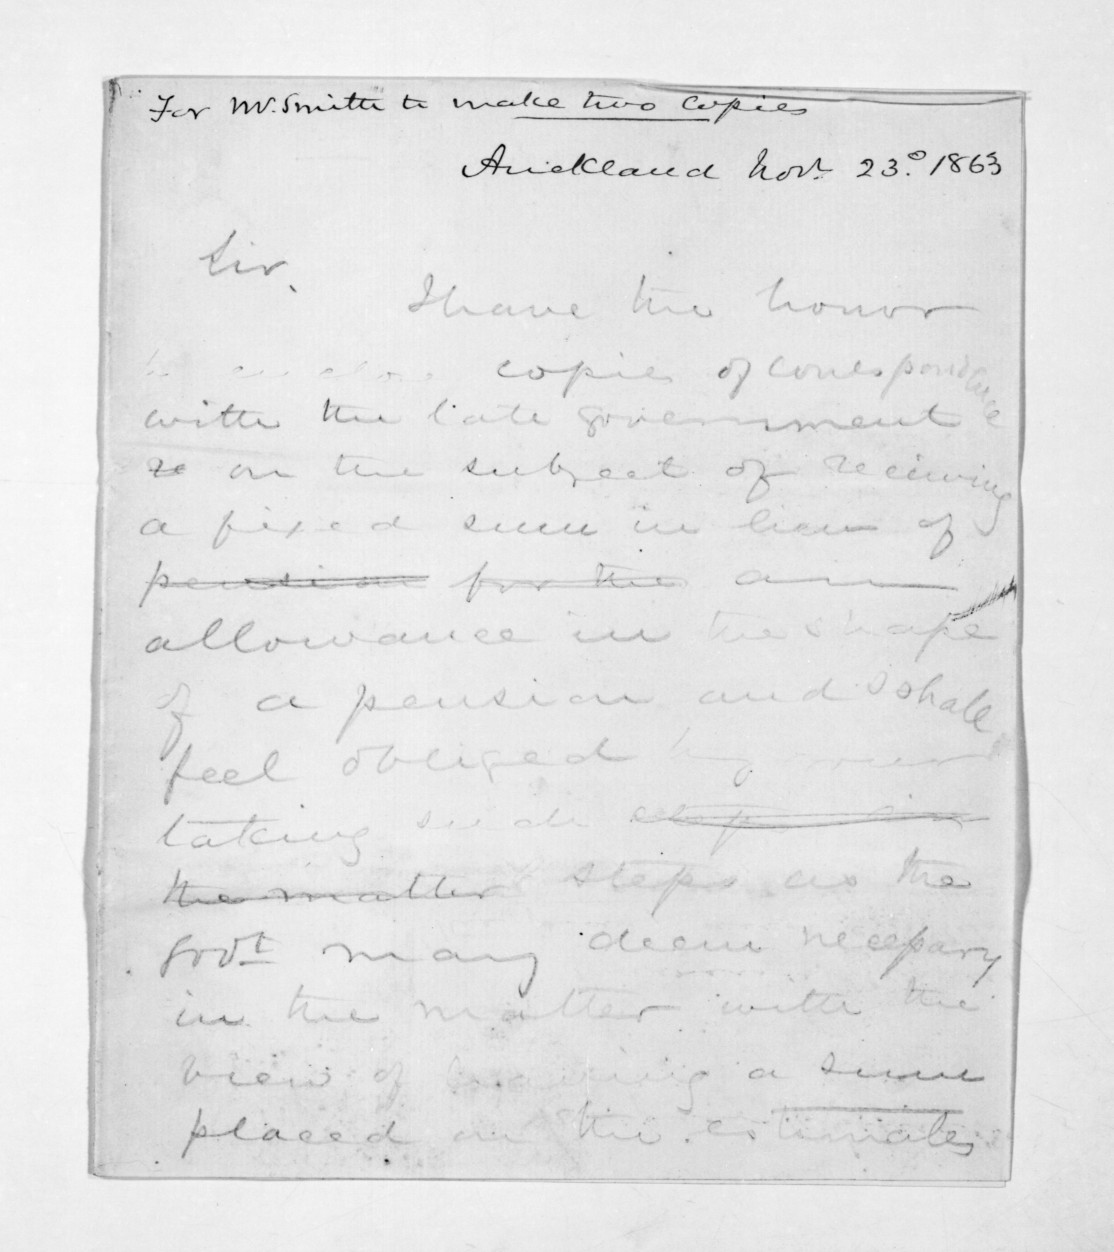 For Mr. Smith to make two copies
Auckland Novr. 23d. 1863
Sir,
I have the honor
to enclose copies of correspondence
with the late government
re on the subject of receiving
a fixed sum in lieu of
pension for the an
allowance in the shape
of a pension and I shall
feel obliged by your
taking such steps in
the matter steps as the
Govt may deem necessary
in the matter with the
view of having a sum
placed on the estimates